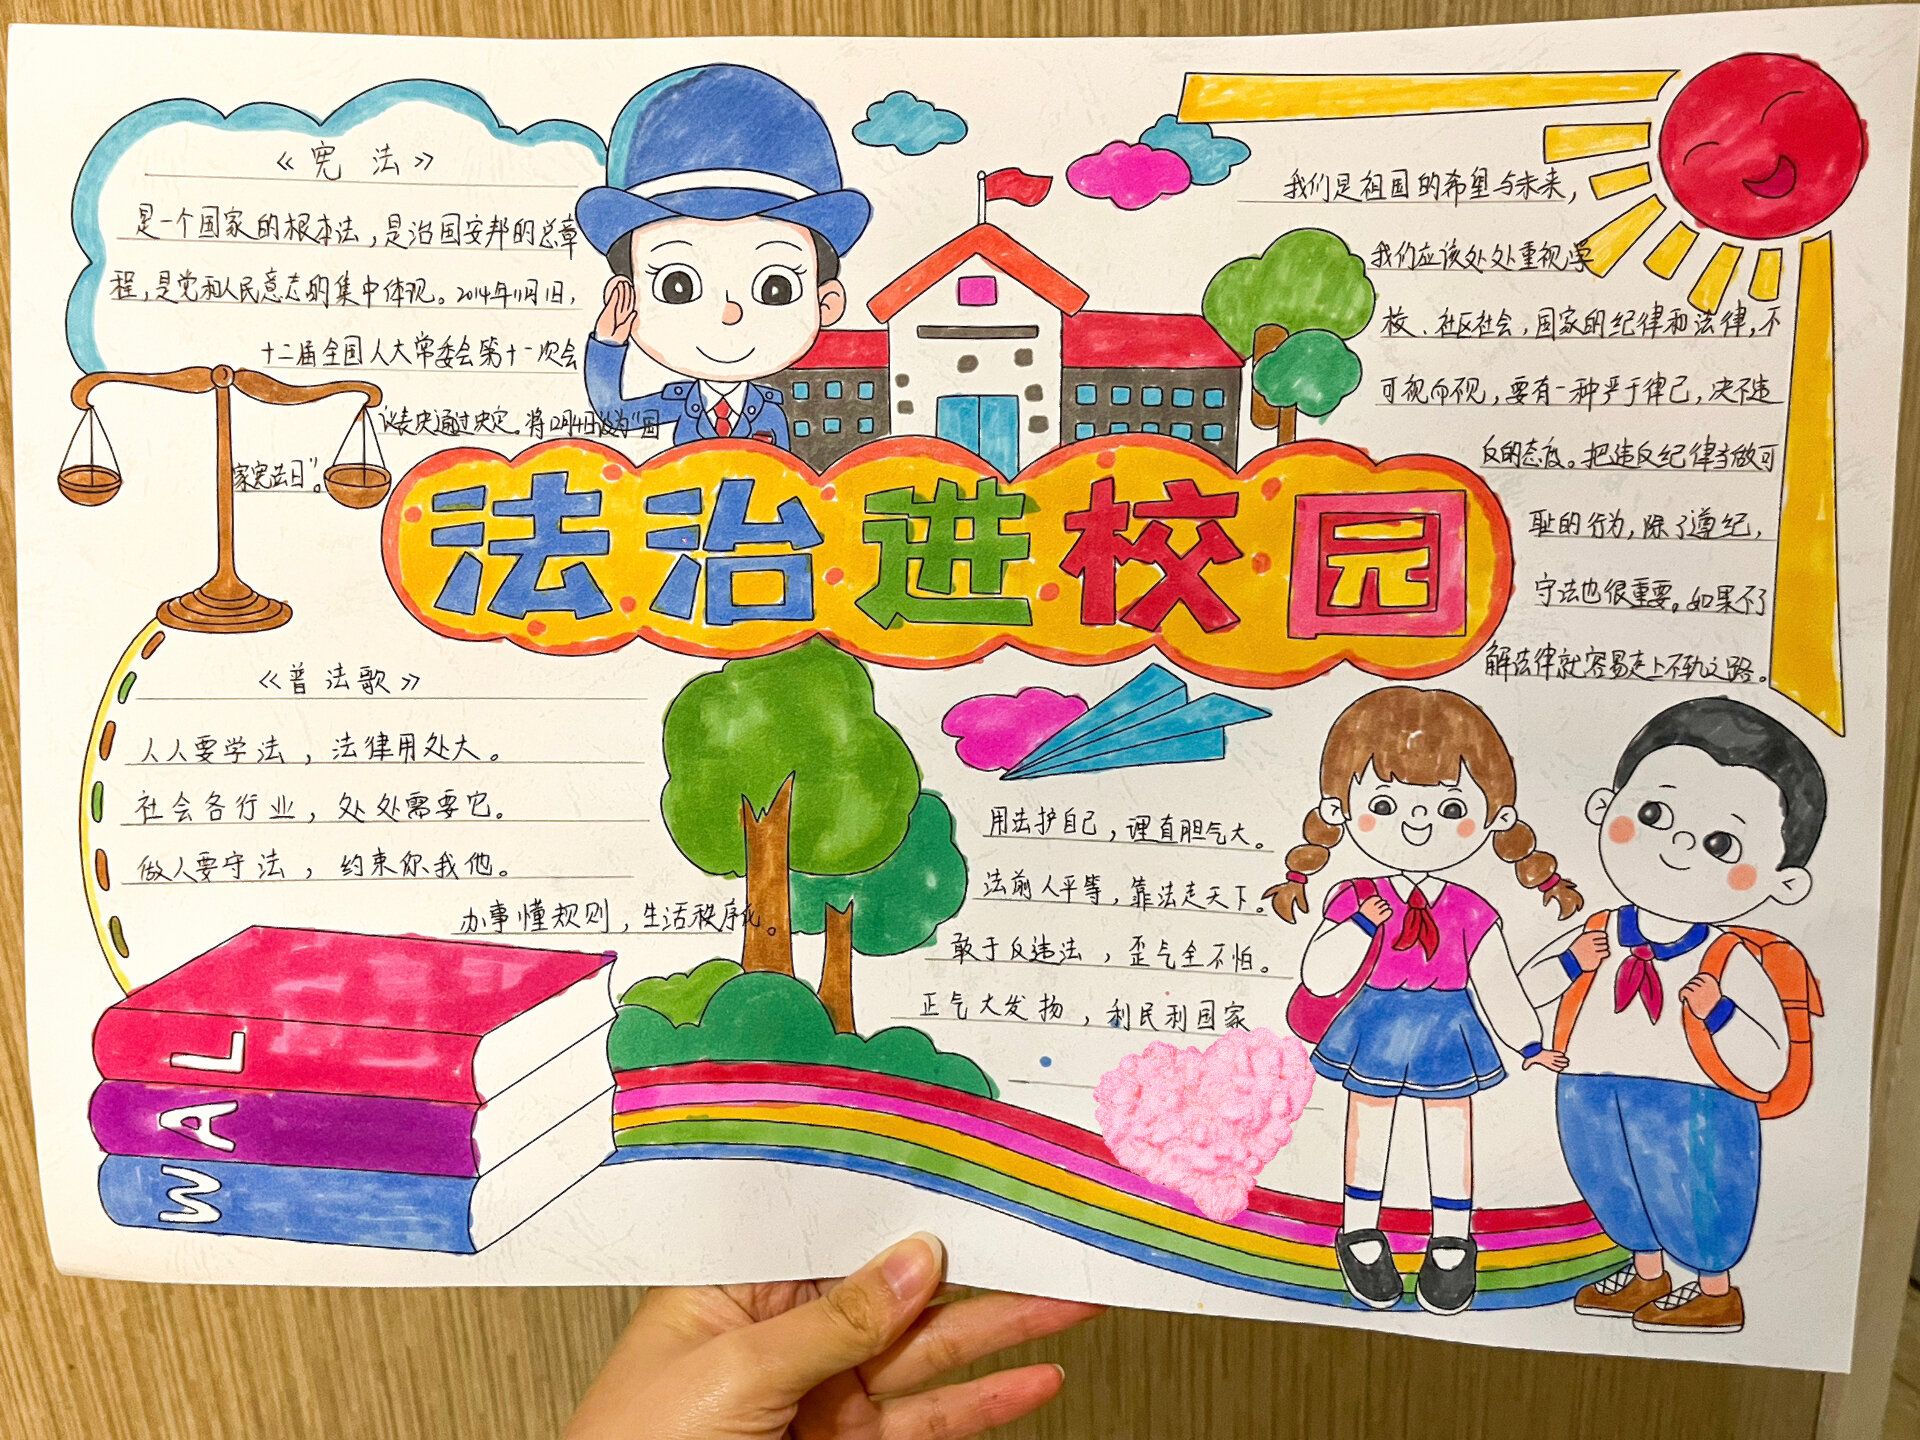 《宪法》
是一个国家的根本法，是治国安邦的总章
程，是党和人民意志的集中体现。2014年11月1日，
十二届全国人大常委会第十一次会
议表决通过决定。将12月4日设为“国
家宪法日”。
法治进校园
我们是祖国的希望与未来，
我们应该处处重视学
校、社区社会，国家的纪律和法律，不
可视而不视，要有一种严于律己，决不违
反的态度。把违反纪律当做可
耻的行为，除了遵纪，
守法也很重要。如果不了
解法律就容易走上不轨之路。
《普法歌》
人人要学法，法律用处大。
社会各行业，处处需要它。
做人要守法，约束你我他。
办事懂规则，生活秩序化。
用法护自己，理直胆气大。
法前人平等，靠法走天下。
敢于反违法，歪气全不怕。
正气大发扬，利民利国家
L
A
W